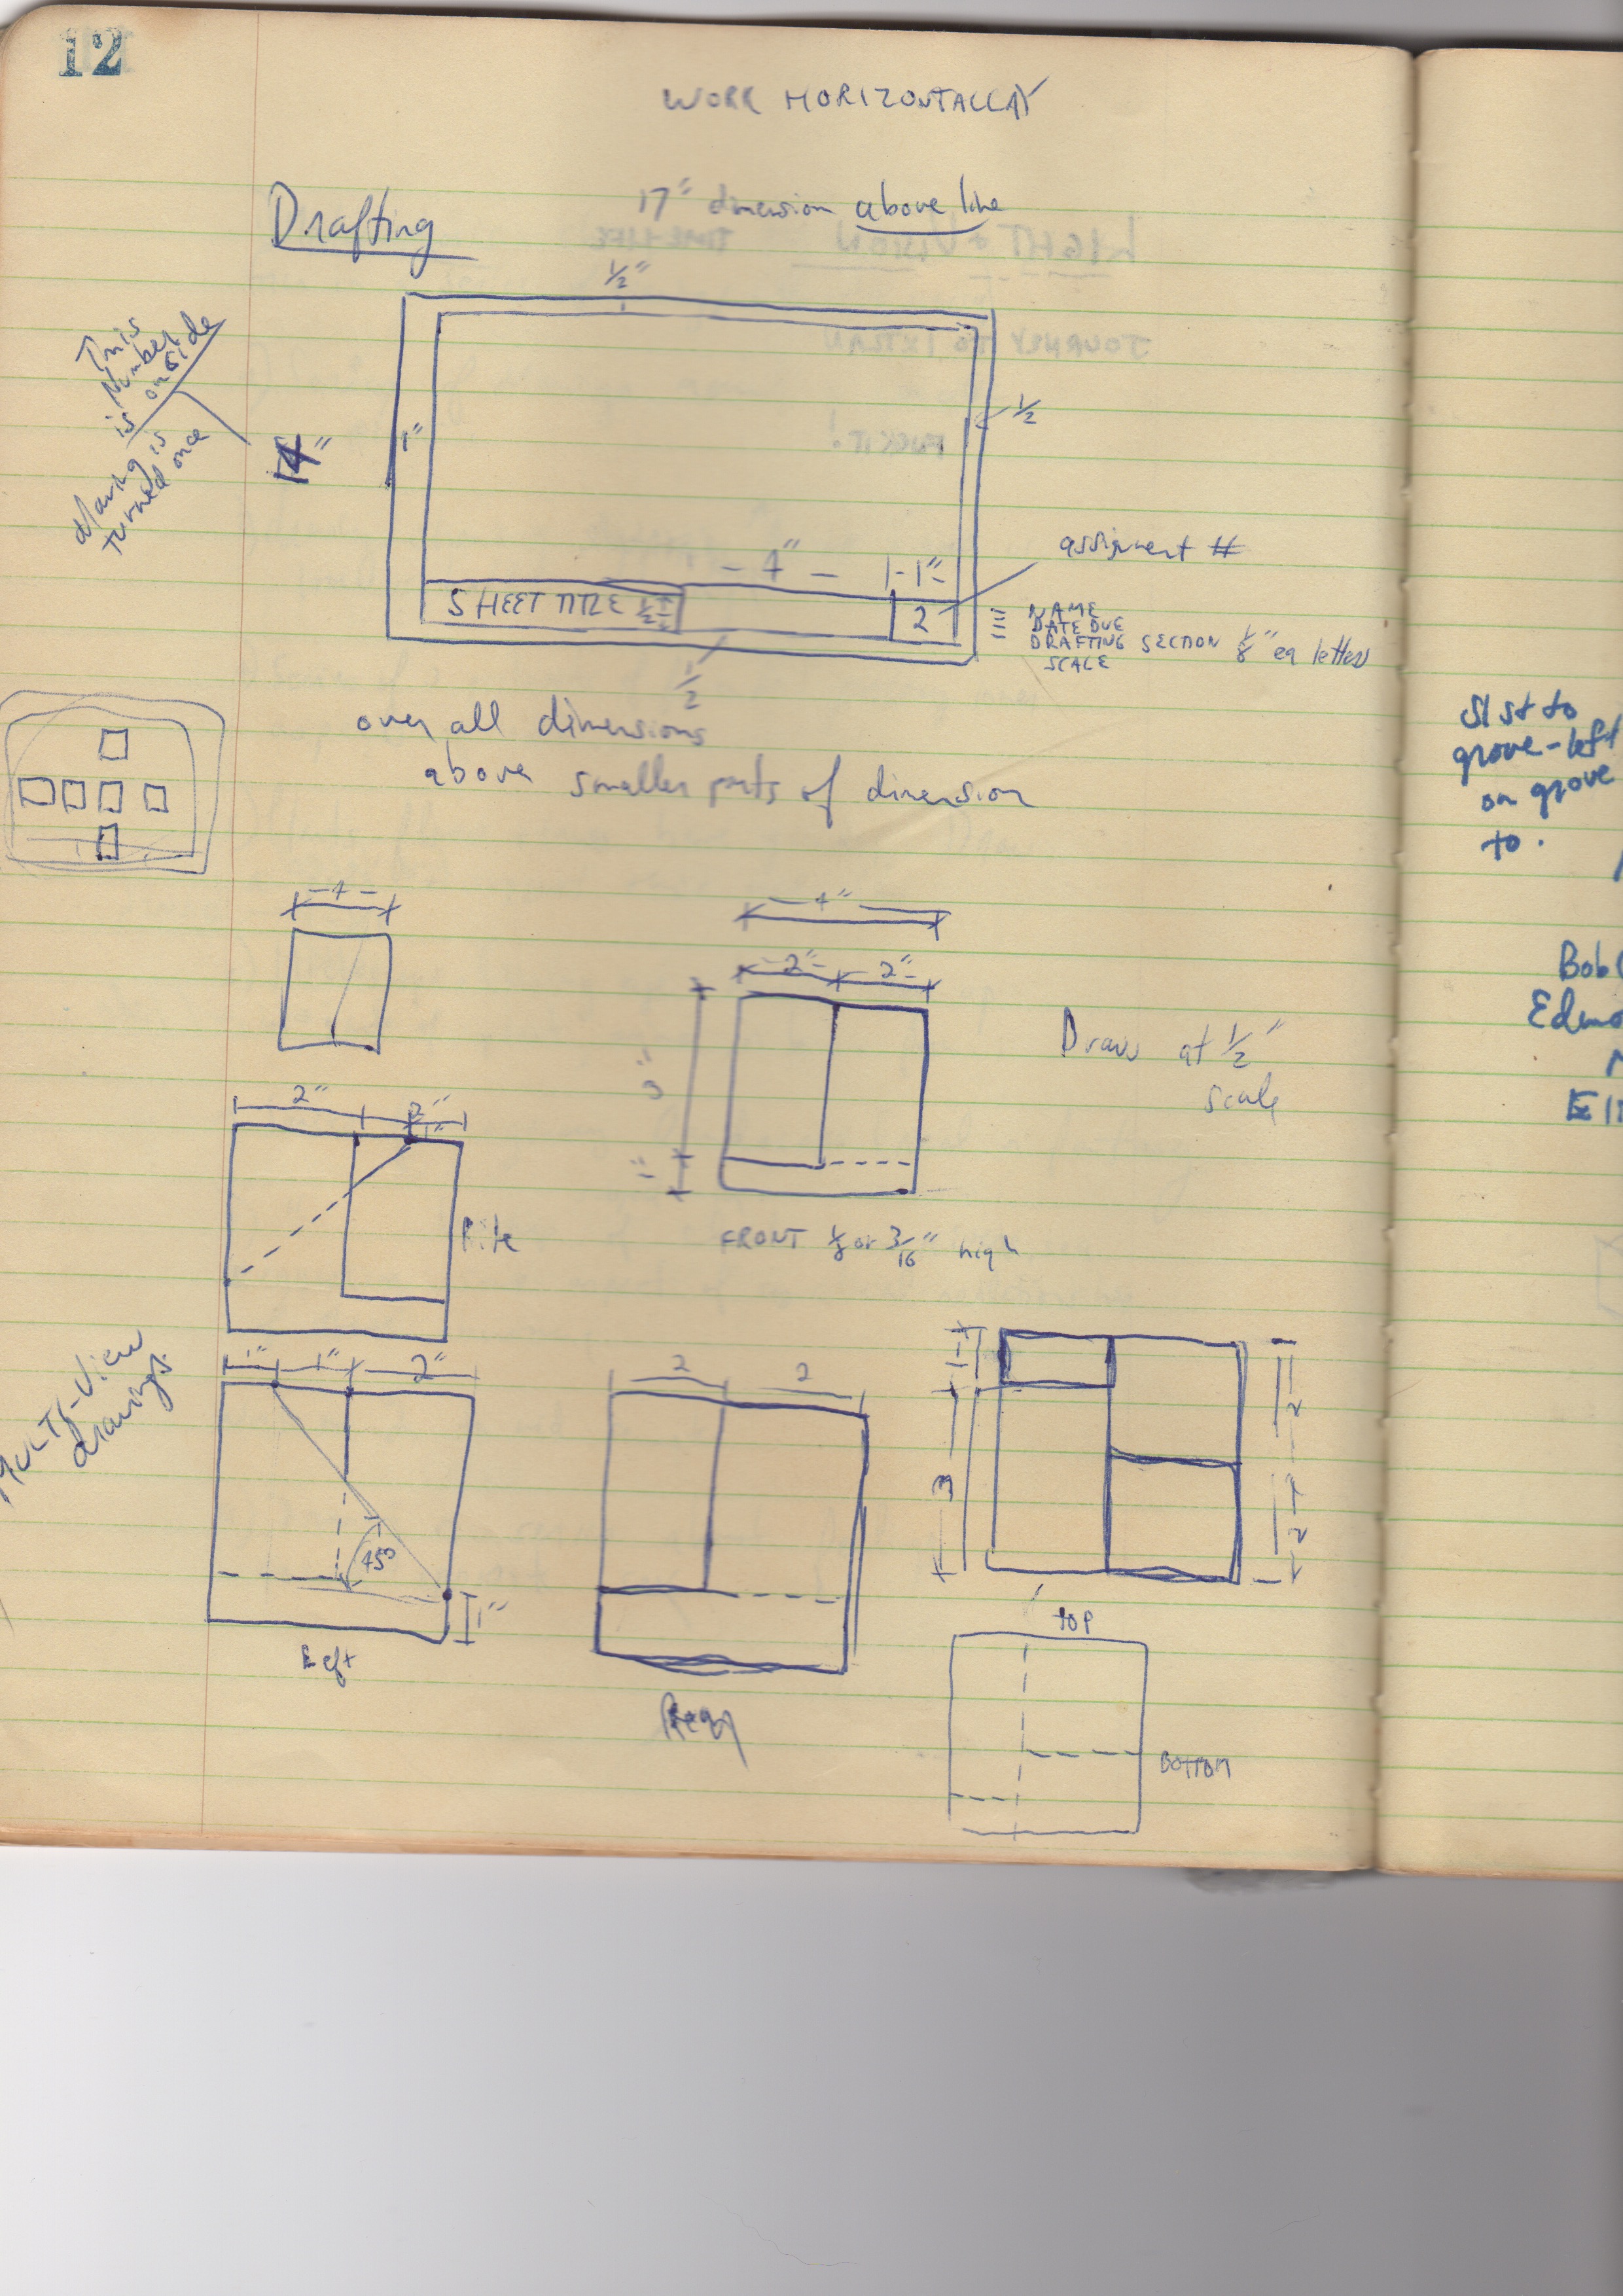 12
WORK HORIZONTALLY
Drafting
17" dimension above line
1/2"
This
Number
is on side
drawing is
turned once
14"
1"
1/2
4"
1"
assigment #
SHEET TITLE 1/2
2
NAME
DATE DUE
DRAFTING SECTION 1/8" ea letter
SCALE
1/2
over all dimensions
above smaller parts of dimension
4
4"
2" 2"
3"
1"
Draw at 1/2"
scale
2" 2"
1"
Rite
FRONT 1/8 or 3/16" high
MULTI-View
drawings
1" 1" 2"
45°
1"
Left
2 2
Rear
1
3
2
2
top
BOTTOM
SISt to
grove-left
on grove
to.
Bob
Edmo